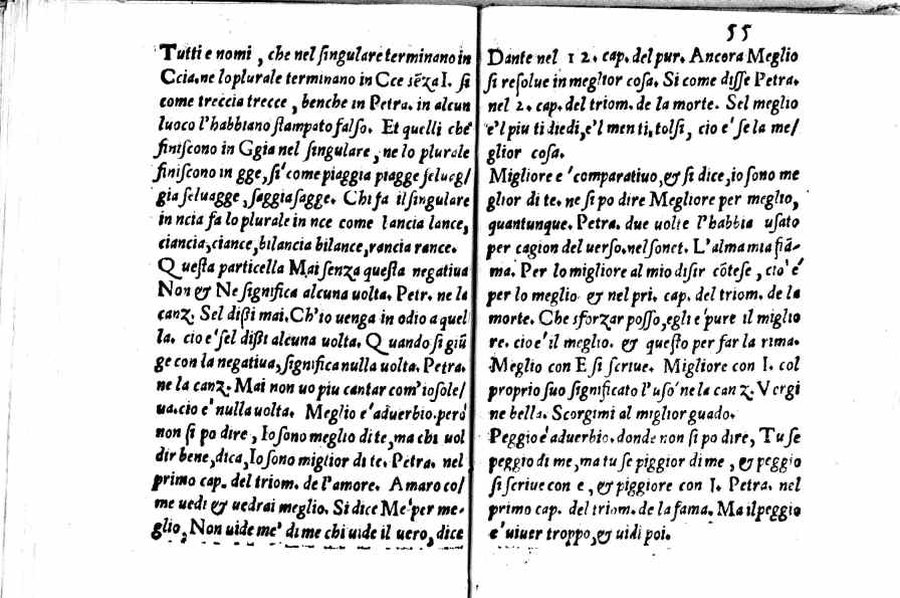 Tutti e nomi, che nel ſingulare terminano in
Ccia, ne lo plurale terminano in Cce sēza I. ſi
come treccia trecce, benche in Petra. in alcun
luoco l'habbiano ſtampato falſo. Et quelli che
finiſcono in Ggia nel ſingulare, ne lo plurale
finiſcono in gge, ſi' come piaggia piagge ſelueg/
gia ſeluagge, ſaggia ſagge. Chi fa il ſingulare
in ncia fa lo plurale in nce come lancia lance,
ciancia, ciance, bilancia bilance, rancia rance.
Queſta particella Mai ſenza queſta negatiua
Non & Ne ſignifica alcuna uolta. Petr. ne la
canz. Sel diſſi mai. Ch'io uenga in odio a quel
la. cio e' ſel diſſi alcuna uolta. Quando ſi giū
ge con la negatiua, ſignifica nulla uolta. Petra.
ne la canz. Mai non uo piu cantar com'io ſole/
ua. cio e' nulla uolta. Meglio e' aduerbio. pero'
non ſi po dire, Io ſono meglio di te, ma chi uol
dir bene, dica, Io ſono miglior di te. Petra. nel
primo cap. del triom. de l'amore. Amaro co/
me uedi & uedrai meglio. Si dice Me' per me-
glio, Non uide me' di me chi uide il uero, dice
55
Dante nel 12. cap. del pur. Ancora Meglio
ſi reſolue in meglior coſa. Si come diſſe Petra.
nel 2. cap. del triom. de la morte. Sel meglio
e'l piu ti diedi, e'l men ti tolſi, cio e' ſe la me/
glior coſa.
Migliore e' comparatiuo, & ſi dice, io ſono me
glior di te. ne ſi po dire Megliore per meglio,
quantunque. Petra. due uolte l'habbia uſato
per cagion del uerſo. nel ſonet. L'alma mia fiā-
ma. Per lo migliore al mio diſir cōteſe, cio' e'
per lo meglio & nel pri. cap. del triom. de la
morte. Che sforzar poſſo, egli e' pure il miglio
re. cio e' il meglio. & queſto per far la rima.
Meglio con E ſi ſcriue. Migliore con I. col
proprio ſuo ſignificato l'uſo' ne la canz. Vergi
ne bella. Scorgimi al miglior guado.
Peggio e' aduerbio. donde non ſi po dire, Tu ſe
peggio di me, ma tu ſe piggior di me, & peggio
ſi ſcriue con e, & piggiore con I. Petra. nel
primo cap. del triom. de la fama. Ma il peggio
e' uiuer troppo, & uidi poi.